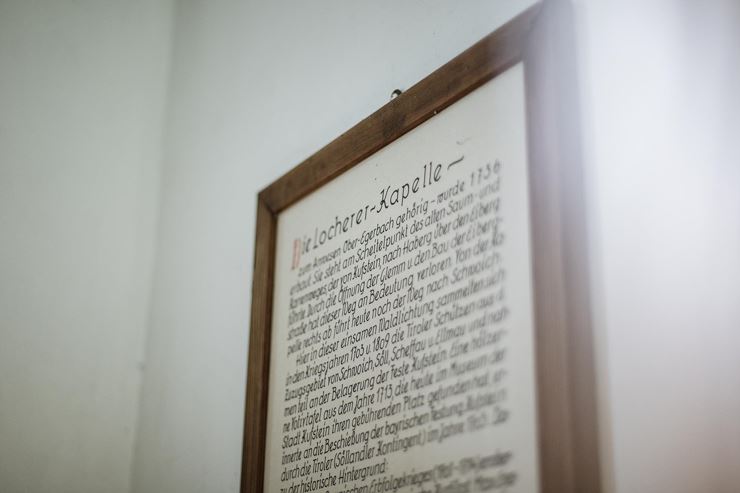 Die Locherer-Kapelle ~
zum Anwesen Ober-Egerbach gehörig - wurde 1736
erbaut. Sie steht am Scheitelpunkt des alten Saum- und
Karrenweges, der von Kufstein nach Haberg über den Eiberg
führte. Durch die Öffnung der Glemm u. den Bau der Eiberg-
straße hat dieser Weg an Bedeutung verloren. Von der Ka
pelle rechts ab führt heute noch der Weg nach Schwoich.
Hier in dieser einsamen Waldlichtung sammelten sich
in den Kriegsjahren 1703 u. 1809 die Tiroler Schützen aus d.
Zuzugsgebiet von Schwoich, Söll, Scheffau u. Ellmau und nah-
men teil an der Belagerung der Feste Kufstein. Eine hölzer-
ne Votivtafel aus dem Jahre 1713, die heute im Museum der
Stadt Kufstein ihren gebührenden Platz gefunden hat, er-
innerte an die Beschießung der bayrischen Festung Kufstein
durch die Tiroler (Söllandler Kontingent) im Jahre
zu der historische Hintergrund:
Erbfolgekrieges